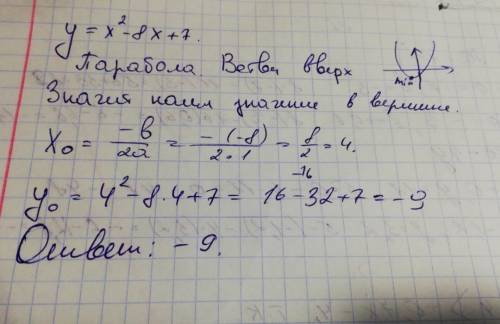 y = x² - 8x + 7.
Парабола. Ветви вверх
min
Значит наим значение в вершине.
x₀ = -в/2a = -(-8)/2·1 = 8/2 = 4.
-16
y₀ = 4² - 8·4 + 7 = 16 - 32 + 7 = -9
Ответ: -9.